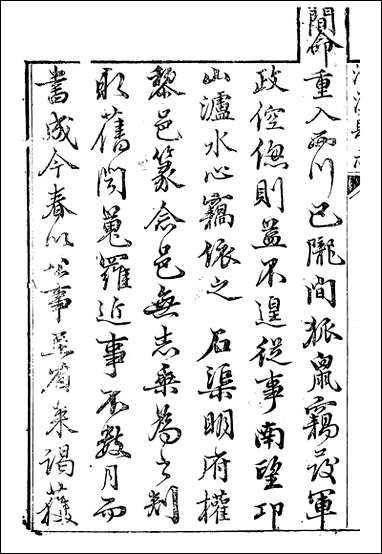 簡命重入西川巴隴間狐鼠竊發軍
政倥傯則益不遑從事南望卭
山瀘水心竊依之 石渠明府權
黎邑篆念邑無志乘為之刱
取舊聞蒐羅近事不數月而
書成今春以公事至省来謁獲